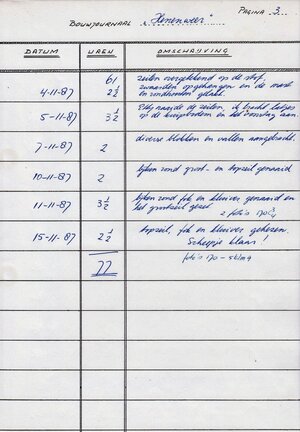 PAGINA 3
BOUWJOURNAAL "Heneweer"
DATUM UREN OMSCHRIJVING
61 zeilen overgetekend op de stof,
4-11-87 2½ zwaarden opgehangen en de mast
en rondhouten gelakt.
5-11-87 3½ Elly naaide de zeilen, ik bracht
op de kuipbodem en het aan.
7-11-87 2 diverse blokken en vallen aangebracht.
10-11-87 2 lijken rond groot- en topzeil genaaid
11-11-87 3½ lijken rond fok en kluiver genaaid en
het grootzeil gezet
2 foto's
15-11-87 2½ topzeil, fok en kluiver gehesen.
Scheepje klaar!
77 foto's 170-